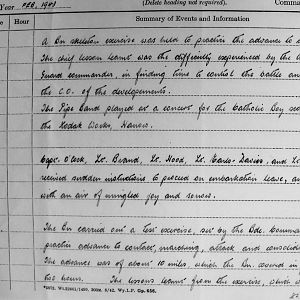 (Delete heading not required).
Comma
Year FEB, 1944
Hour
Summary of Events and Information
A Bn skeleton exercise was held to practise the advance to
The chief lesson learnt was the difficulty experienced by the
Guard commander, in finding time to control the battle and
the C.O. of the developments.
The Pipe Band played at a concert for the Catholic Boy
the Kodak Works, Harrow.
Capt. O'Lock, Lt. Brand, Lt. Hood, Lt. Earle-Davies, and
received sudden instructions to proceed on embarkation leave, an
with an air of mingled joy and sorrow.
The Bn carried out a test exercise, set by the Bde. Comma
practise advance to contact, marching, attack and consolid
The advance was of about 10 miles, which the Bn. covered in
two hours. The lessons learnt from the exercise, which